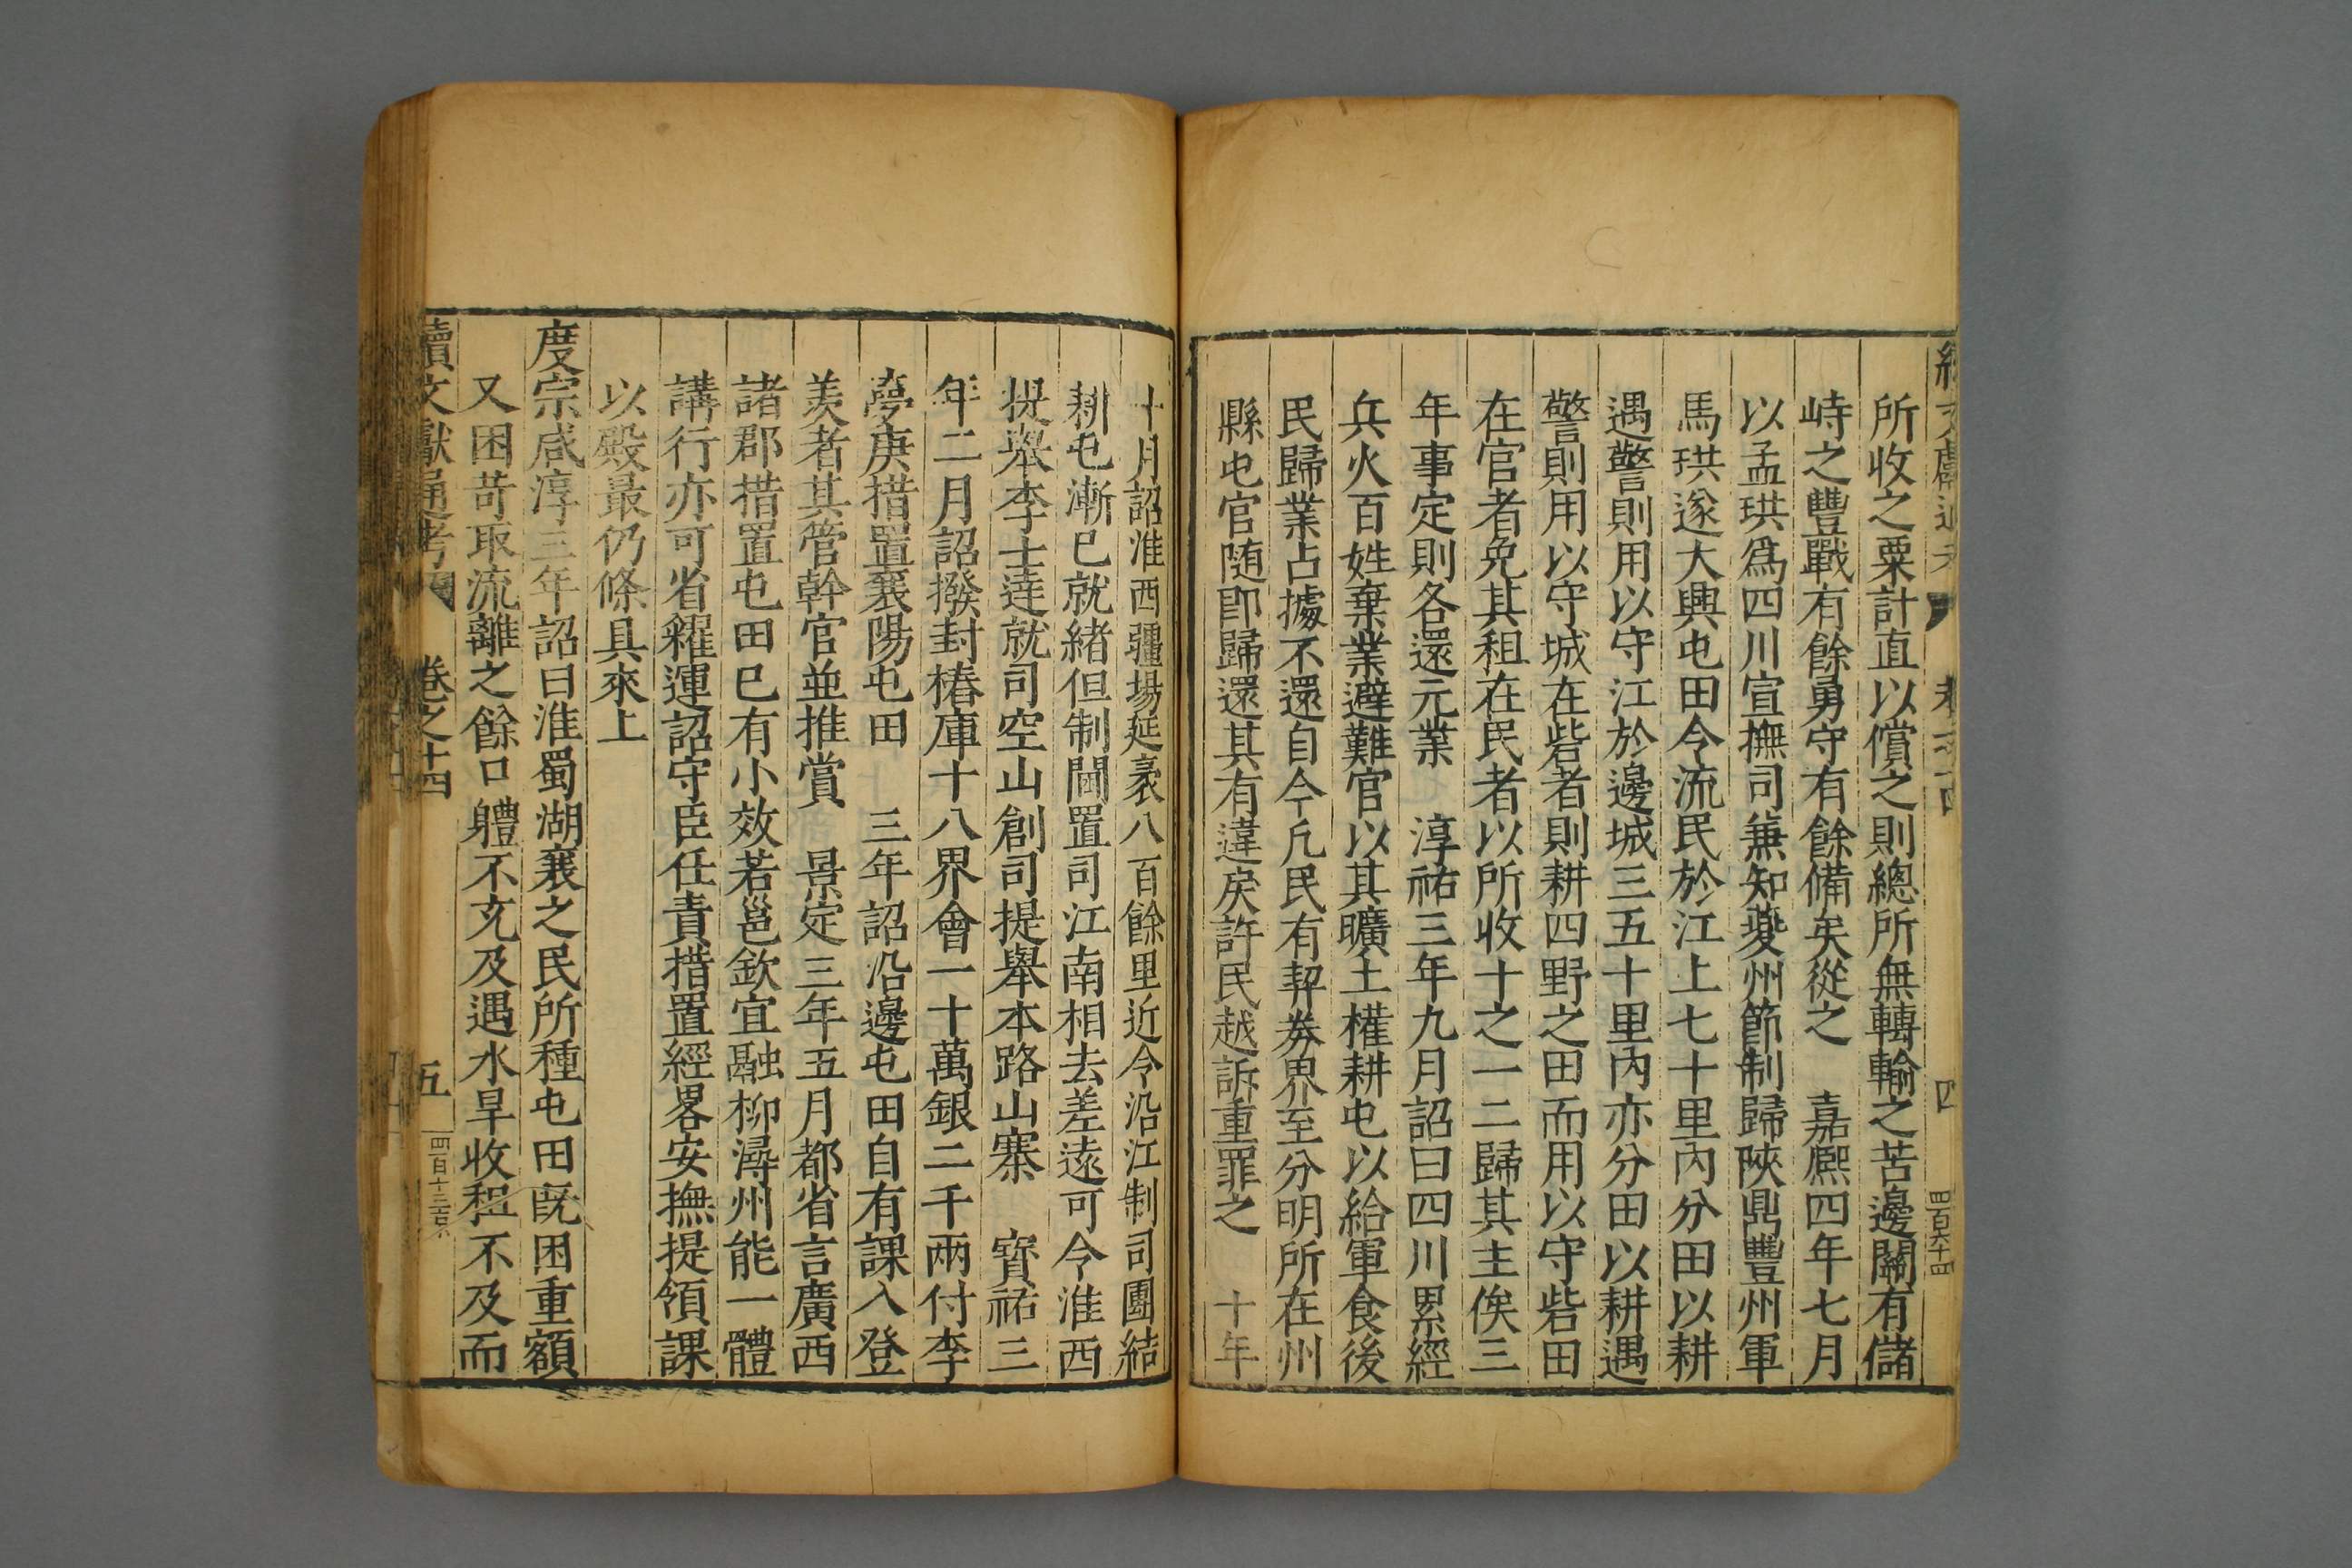 所收之粟計直以償之則總所無轉輸之苦邊關有儲
峙之豐戰有餘勇守有餘備矣從之　嘉熙四年七月
以孟珙爲四川宣撫司兼知夔州節制歸陜鼎豐州軍
馬珙遂大興屯田令流民於江上七十里內分田以耕
遇警則用以守江於邊城三五十里內亦分田以耕遇
警則用以守城在砦者則耕四野之田而用以守砦田
在官者免其租在民者以所收十之一二歸其主俟三
年事定則各還元業　淳祐三年九月詔曰四川累經
兵火百姓棄業避難官以其曠土權耕屯以給軍食後
民歸業占據不還自今凡民有契券界至分明所在州
縣屯官随卽歸還其有違戾許民越訴重罪之　十年
十月詔淮西疆場延袤八百餘里近令沿江制司團結
耕屯漸已就緒但制閫置司江南相去差遠可令淮西
提舉李士達就司空山創司提舉本路山寨　寳祐三
年二月詔撥封樁庫十八界會一十萬銀二千兩付李
夢庚措置襄陽屯田　三年詔沿邊屯田自有課入登
羨者其管幹官並推賞　景定三年五月都省言廣西
諸郡措置屯田已有小效若邕欽宜融柳潯州能一體
講行亦可省糴運詔守臣任責措置經畧安撫提領課
以殿最仍條具來上
度宗咸淳三年詔曰淮蜀湖襄之民所種屯田旣困重額
又困苛取流離之餘口體不充及遇水旱收租不及而
續文獻通考　卷之十四　五